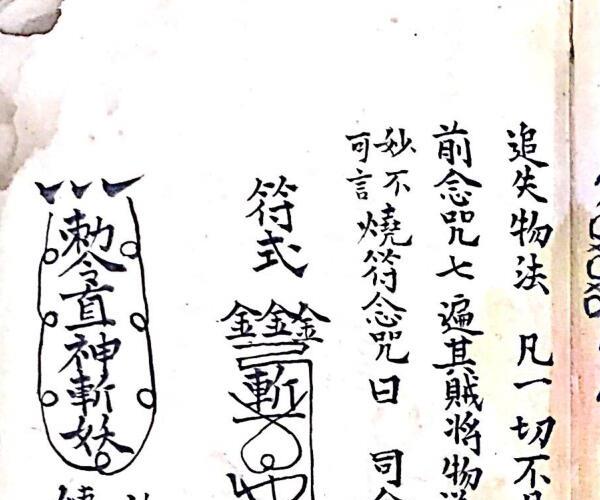 追失物法　凡一切不
前念咒七遍其賊將物
妙不
可言
燒符念咒曰　司
符式
金金金
斬
勅令直神斬妖